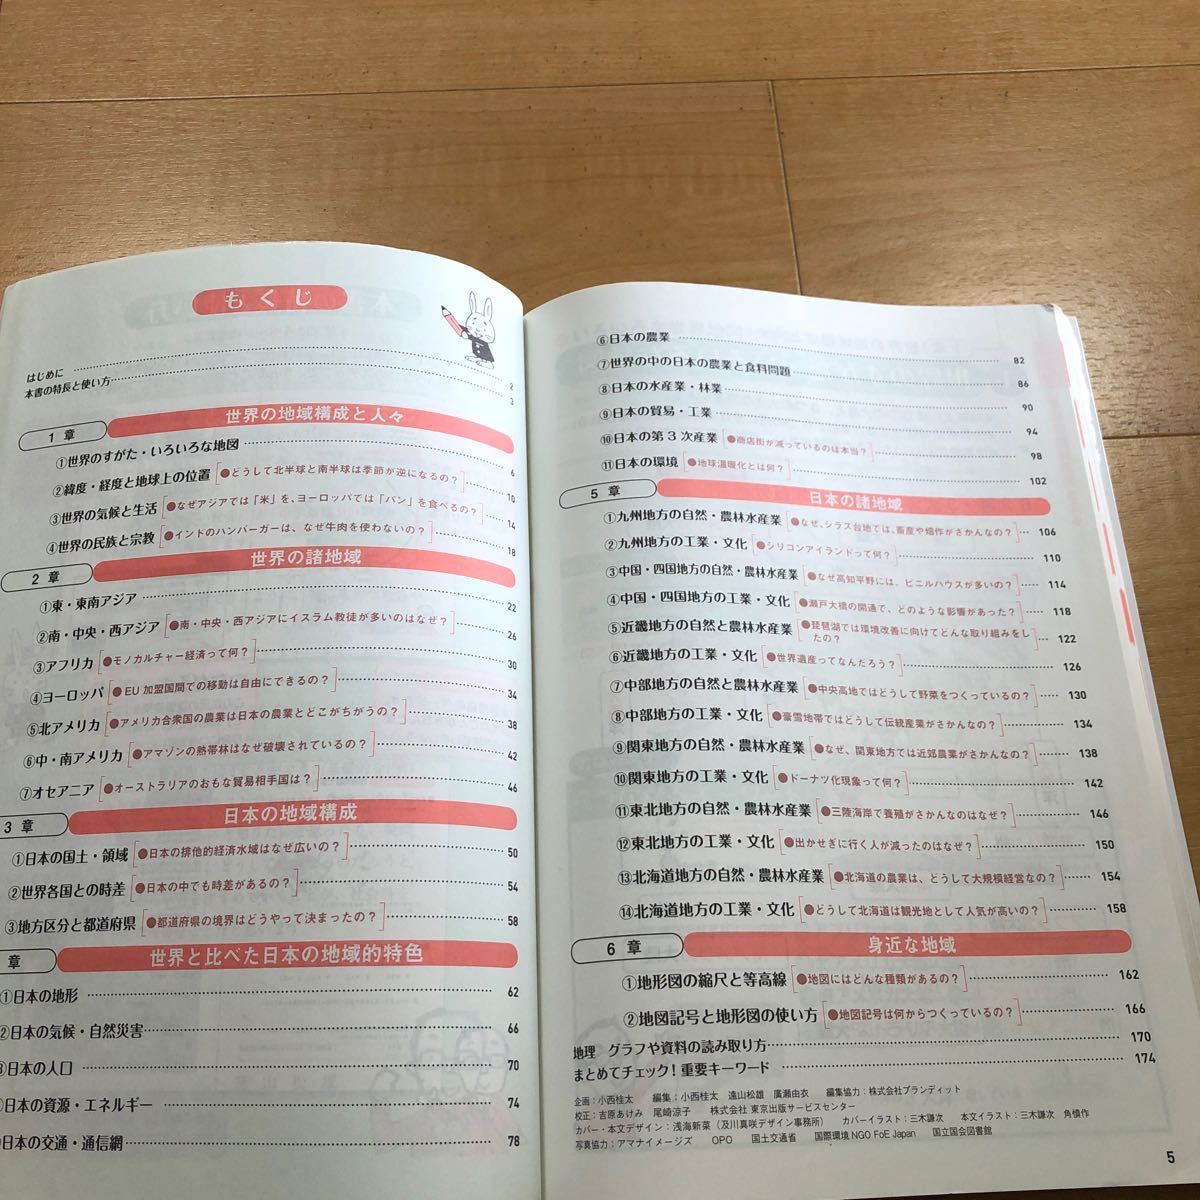 もくじ
はじめに 2
本書の特長と使い方 3
1章 世界の地域構成と人々
①世界のすがた・いろいろな地図 6
②緯度・経度と地球上の位置 ●どうして北半球と南半球は季節が逆になるの？ 10
③世界の気候と生活 ●なぜアジアでは「米」を、ヨーロッパでは「パン」を食べるの？ 14
④世界の民族と宗教 ●インドのハンバーガーは、なぜ牛肉を使わないの？ 18
2章 世界の諸地域
①東・東南アジア 22
②南・中央・西アジア ●南・中央・西アジアにイスラム教徒が多いのはなぜ？ 26
③アフリカ ●モノカルチャー経済って何？ 30
④ヨーロッパ ●EU加盟国間での移動は自由にできるの？ 34
⑤北アメリカ ●アメリカ合衆国の農業は日本の農業とどこがちがうの？ 38
⑥中・南アメリカ ●アマゾンの熱帯林はなぜ破壊されているの？ 42
⑦オセアニア ●オーストラリアのおもな貿易相手国は？ 46
3章 日本の地域構成
①日本の国土・領域 ●日本の排他的経済水域はなぜ広いの？ 50
②世界各国との時差 ●日本の中でも時差があるの？ 54
③地方区分と都道府県 ●都道府県の境界はどうやって決まったの？ 58
章 世界と比べた日本の地域的特色
①日本の地形 62
②日本の気候・自然災害 66
③日本の人口 70
日本の資源・エネルギー 74
日本の交通・通信網 78
⑥日本の農業 82
⑦世界の中の日本の農業と食料問題 86
⑧日本の水産業・林業 90
⑨日本の貿易・工業 94
⑩日本の第3次産業 ●商店街が減っているのは本当？ 98
⑪日本の環境 ●地球温暖化とは何？ 102
5章 日本の諸地域
①九州地方の自然・農林水産業 ●なぜ、シラス台地では、畜産や畑作がさかんなの？ 106
②九州地方の工業・文化 ●シリコンアイランドって何？ 110
③中国・四国地方の自然・農林水産業 ●なぜ高知平野には、ビニルハウスが多いの？ 114
④中国・四国地方の工業・文化 ●瀬戸大橋の開通で、どのような影響があった？ 118
⑤近畿地方の自然と農林水産業 ●琵琶湖では環境改善に向けてどんな取り組みをし
たの？ 122
⑥近畿地方の工業・文化 ●世界遺産ってなんだろう？ 126
⑦中部地方の自然と農林水産業 ●中央高地ではどうして野菜をつくっているの？ 130
⑧中部地方の工業・文化 ●豪雪地帯ではどうして伝統産業がさかんなの？ 134
⑨関東地方の自然・農林水産業 ●なぜ、関東地方では近郊農業がさかんなの？ 138
⑩関東地方の工業・文化 ●ドーナツ化現象って何？ 142
⑪東北地方の自然・農林水産業 ●三陸海岸で養殖がさかんなのはなぜ？ 146
⑫東北地方の工業・文化 ●出かせぎに行く人が減ったのはなぜ？ 150
⑬北海道地方の自然・農林水産業 ●北海道の農業は、どうして大規模経営なの？ 154
⑭北海道地方の工業・文化 ●どうして北海道は観光地として人気が高いの？ 158
6章 身近な地域
①地形図の縮尺と等高線 ●地図にはどんな種類があるの？ 162
②地図記号と地形図の使い方 ●地図記号は何からつくっているの？ 166
地理 グラフや資料の読み取り方 170
まとめてチェック！重要キーワード 174
企画：小西桂太 編集：小西桂太 遠山松雄 廣瀬由衣 編集協力：株式会社ブランディット
校正：吉原あけみ 尾崎涼子 株式会社 東京出版サービスセンター
カバー・本文デザイン：浅海新菜（及川真咲デザイン事務所） カバーイラスト：三木謙次 本文イラスト：三木謙次 角慎作
写真協力：アマナイメージズ OPO 国土交通省 国際環境NGO FoE Japan 国立国会図書館
5